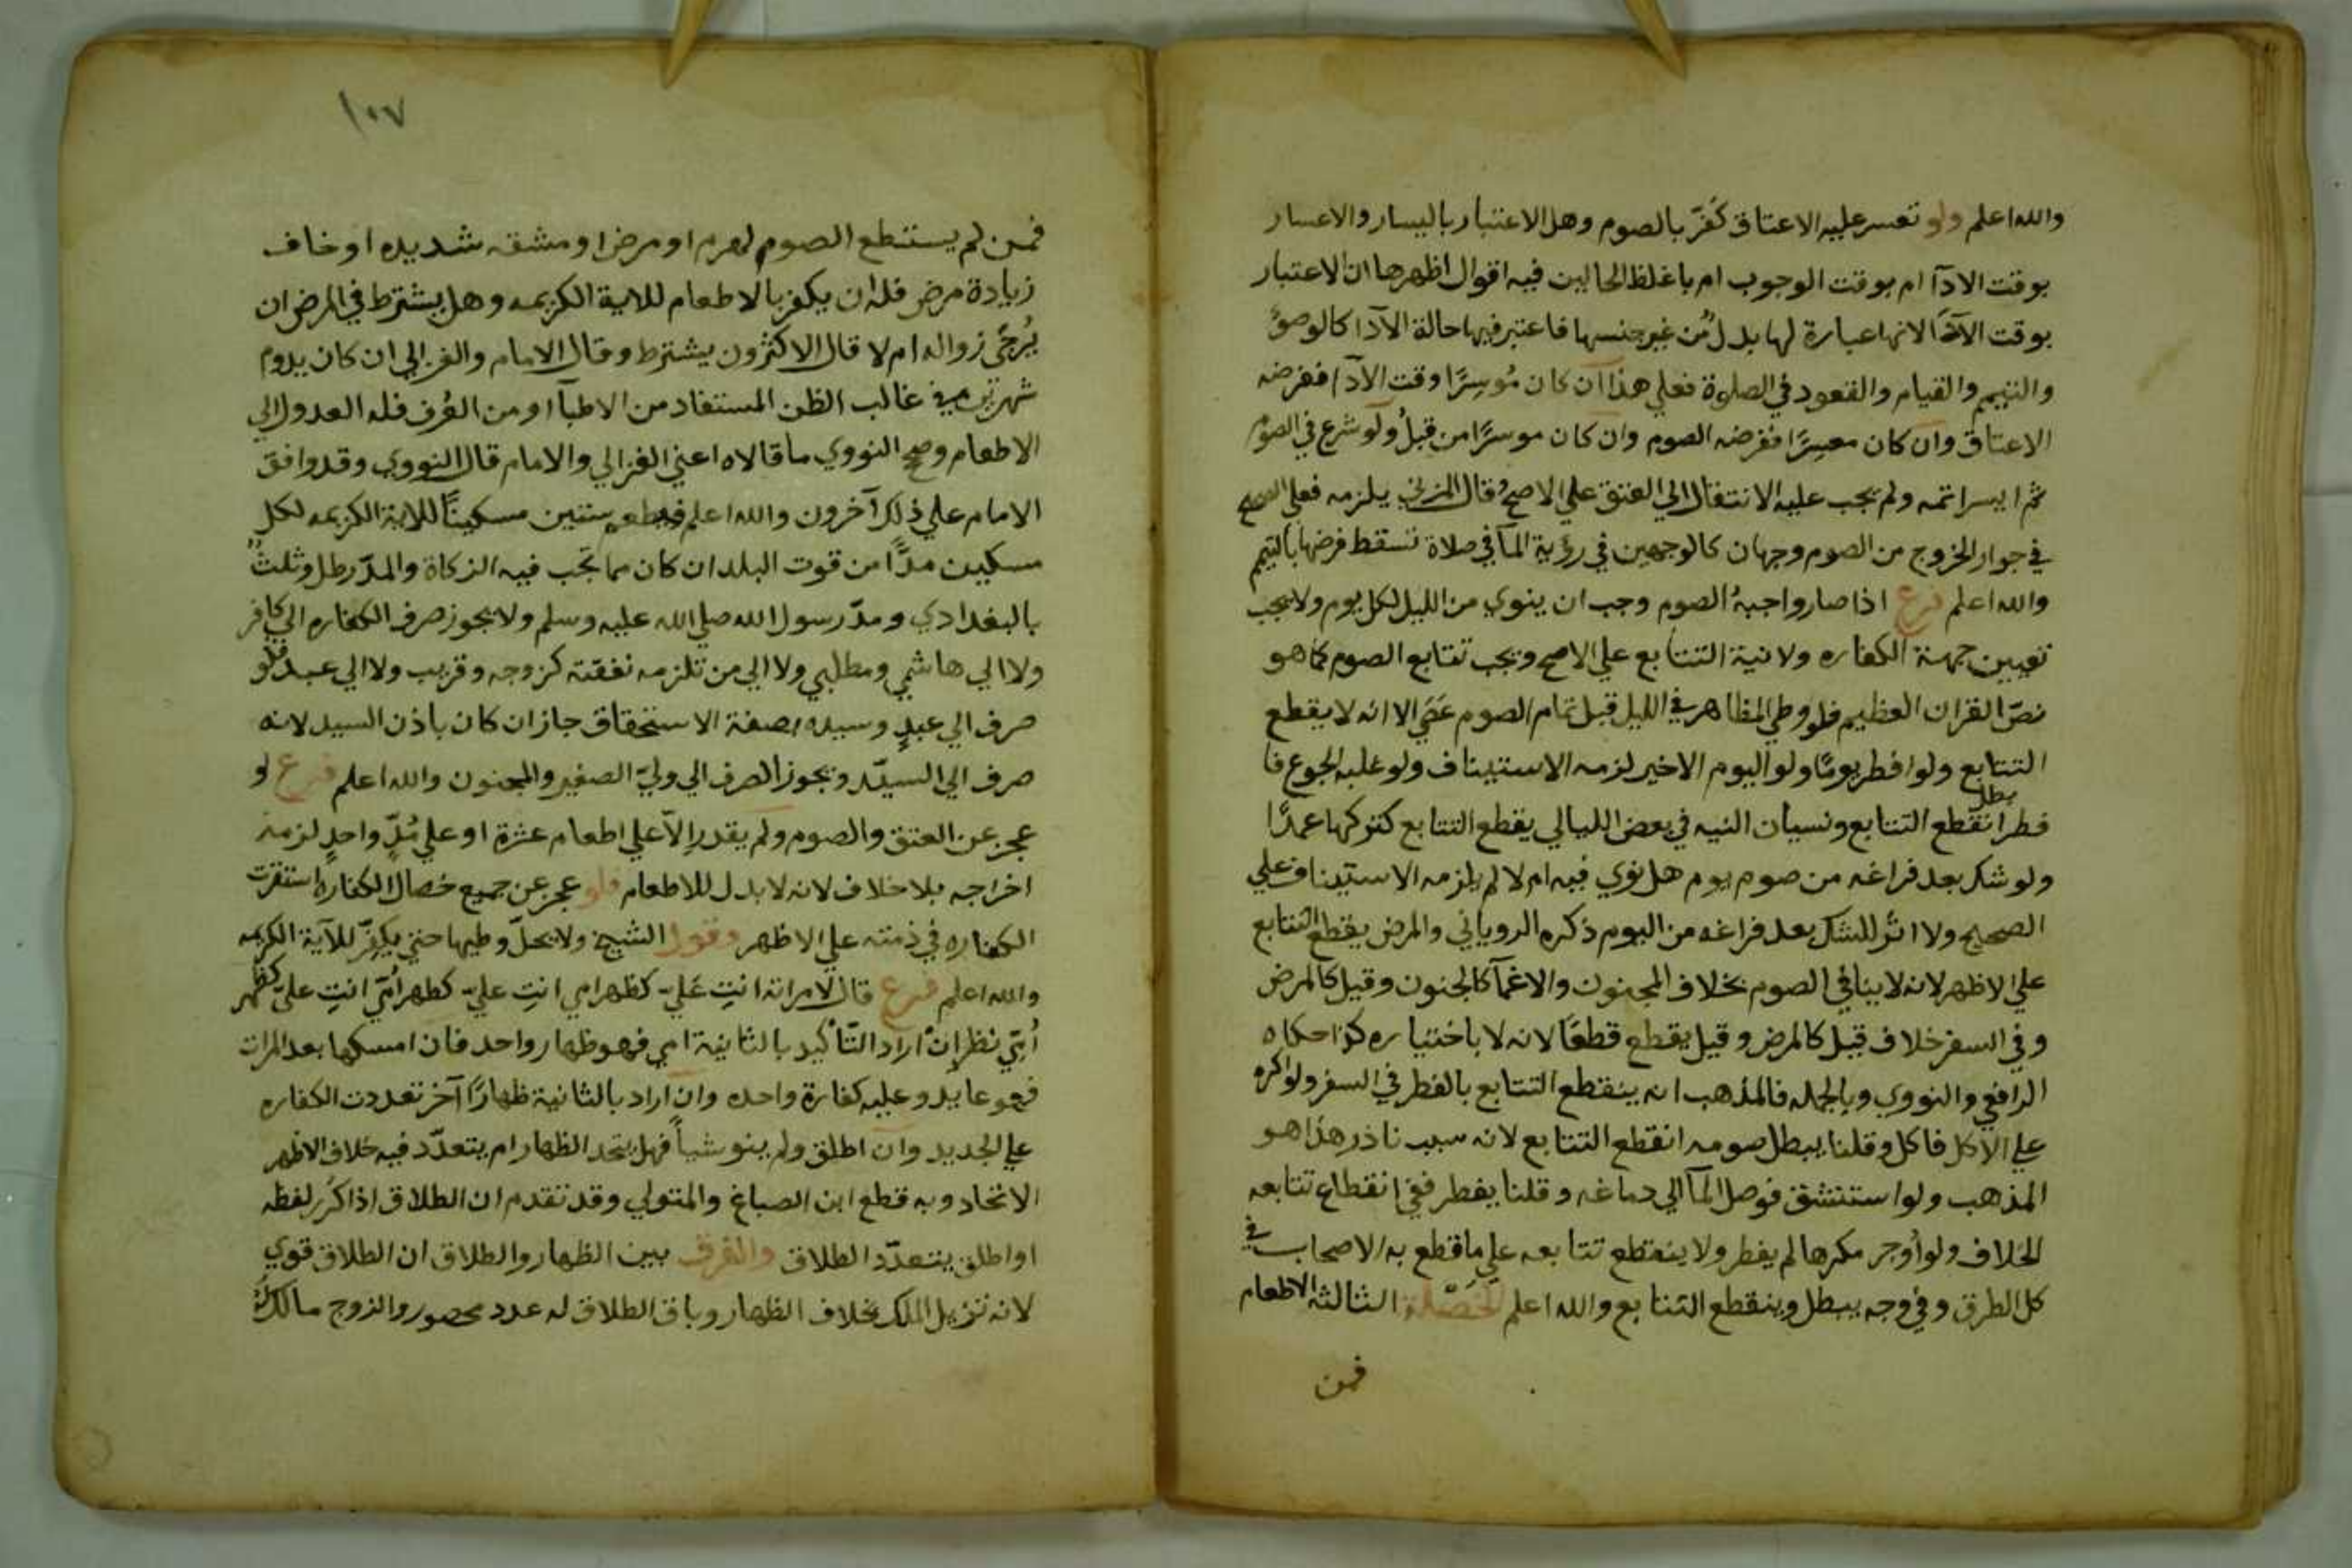 والله اعلم ولو تعسر عليه الاعتاق كفّر بالصوم وهل الاعتبار باليسار والاعسار
بوقت الادآ ام بوقت الوجوب ام باغلظ الحالين فيه اقوال اظهرها ان الاعتبار
بوقت الادآ لانها عبارة لها بدل من غير جنسها فاعتبر فيها حالة الآدا كالوضؤ
والتيمم والقيام والقعود في الصلوة فعلي هذا ان كان مُوسِرًا وقت الآدا ففرضه
الاعتاق وان كان معسِرًا ففرضه الصوم وان كان موسرًا من قبلُ ولو شرع في الصوم
ثم ايسر اتمه ولم يجب عليه الانتقال الي العتق علي الاصح وقال المزني يلزمه فعلي الصحيح
في جواز الخروج من الصوم وجهان كالوجهين في رؤية المآ في صلاة تسقط فرضها بالتيمم
والله اعلم فرع اذا صار واجبهُ الصوم وجب ان ينوي من الليل لكل يوم ولا يجب
تعيين جهة الكفاره ولا نية التتابع علي الاصح ويجب تتابع الصوم كما هو
نصّ القران العظيم فلو وطي المظاهر في الليل قبل تمام الصوم عَصَي الا انه لا يقطع
التتابع ولو افطر يومًا ولو اليوم الاخير لزمه الاستيناف ولو غلبه الجوع فا
فطر انقطع التتابع ونسيان النيه في بعض الليالي يقطع التتابع كتركها عمدًا
بطل
ولو شك بعد فراغه من صوم يوم هل نوي فيه ام لا لم يلزمه الاستيناف علي
الصحيح ولا اثر للشك بعد فراغه من اليوم ذكره الروياني والمرض يقطع التتابع
علي الاظهر لانه لا ينافي الصوم بخلاف المجنون والاغمآ كالجنون وقيل كالمرض
وفي السفر خلاف قيل كالمرض وقيل يقطع قطعًا لانه لا باختياره كذا حكاه
الرافعي والنووي وبالجمله فالمذهب انه ينقطع التتابع بالفطر في السفر ولو اكره
علي الاكل فاكل وقلنا يبطل صومه انقطع التتابع لانه سبب نادر هذا هو
المذهب ولو استنشق فوصل المآ الي دماغه وقلنا يفطر ففي انقطاع تتابعه
الخلاف ولو أُوجر مكرها لم يفطر ولا ينقطع تتابعه علي ما قطع به الاصحاب في
كل الطرق وفي وجه يبطل وينقطع التتابع والله اعلم الخَصْلة الثالثة الاطعام
فمن
١٠٧
فمن لم يستطع الصوم لهرم او مرض او مشقه شديده او خاف
زيادة مرض فله ان يكفر بالاطعام للاية الكريمه وهل يشترط في المرض ان
يُرجَي زواله ام لا قال الاكثرون يشترط وقال الامام والغزالي ان كان يدوم
شهرين في غالب الظن المستفاد من الاطبآ او من العُرف فله العدول الي
الاطعام وصحح النووي ما قالاه اعني الغزالي والامام قال النووي وقد وافق
الامام علي ذلك آخرون والله اعلم فيطعم ستين مسكينًا للاية الكريمه لكل
مسكين مدًّا من قوت البلد ان كان مما تجب فيه الزكاة والمدّ رطل وثلث
بالبغدادي ومدّ رسول الله صلي الله عليه وسلم ولا يجوز صرف الكفاره الي كافر
ولا الي هاشمي ومطلبي ولا الي من تلزمه نفقته كزوجه وقريب ولا الي عبد فلو
صرف الي عبدٍ وسيده بصفة الاستحقاق جاز ان كان باذن السيد لانه
صرف الي السيّد ويجوز الصرف الي وليّ الصغير والمجنون والله اعلم فرع لو
عجز عن العتق والصوم ولم يقدر إلاّ علي اطعام عشرة او علي مُدٍّ واحدٍ لزمه
اخراجه بلا خلاف لانه لا بدل للاطعام فلو عجز عن جميع خصال الكفاره استقرت
الكفاره في ذمته علي الاظهر وقول الشيخ ولا يحلّ وطيها حتي يكفّر للآية الكريمه
والله اعلم فرع قال لامراته انتِ عَليّ كظهر امي انتِ عليّ كظهر أمّي انتِ عليّ كظهر
أمّي نظر إنْ اراد التّأكيد بالثانية امي فهو ظهار واحد فان امسكها بعد المرات
فهو عايد وعليه كفارة واحده وان اراد بالثانية ظهارًا آخر تعددت الكفاره
علي الجديد وان اطلق ولم ينو شياً فهل يتحد الظهار ام يتعدّد فيه خلاف الاظهر
الاتحاد وبه قطع ابن الصباغ والمتولي وقد تقدم ان الطلاق اذا كرّر لفظه
او اطلق يتعدّد الطلاق والفرق بين الظهار والطلاق ان الطلاق قوي
لانه تزيل الملك بخلاف الظهار وبان الطلاق له عدد محصور والزوج مالكٌ